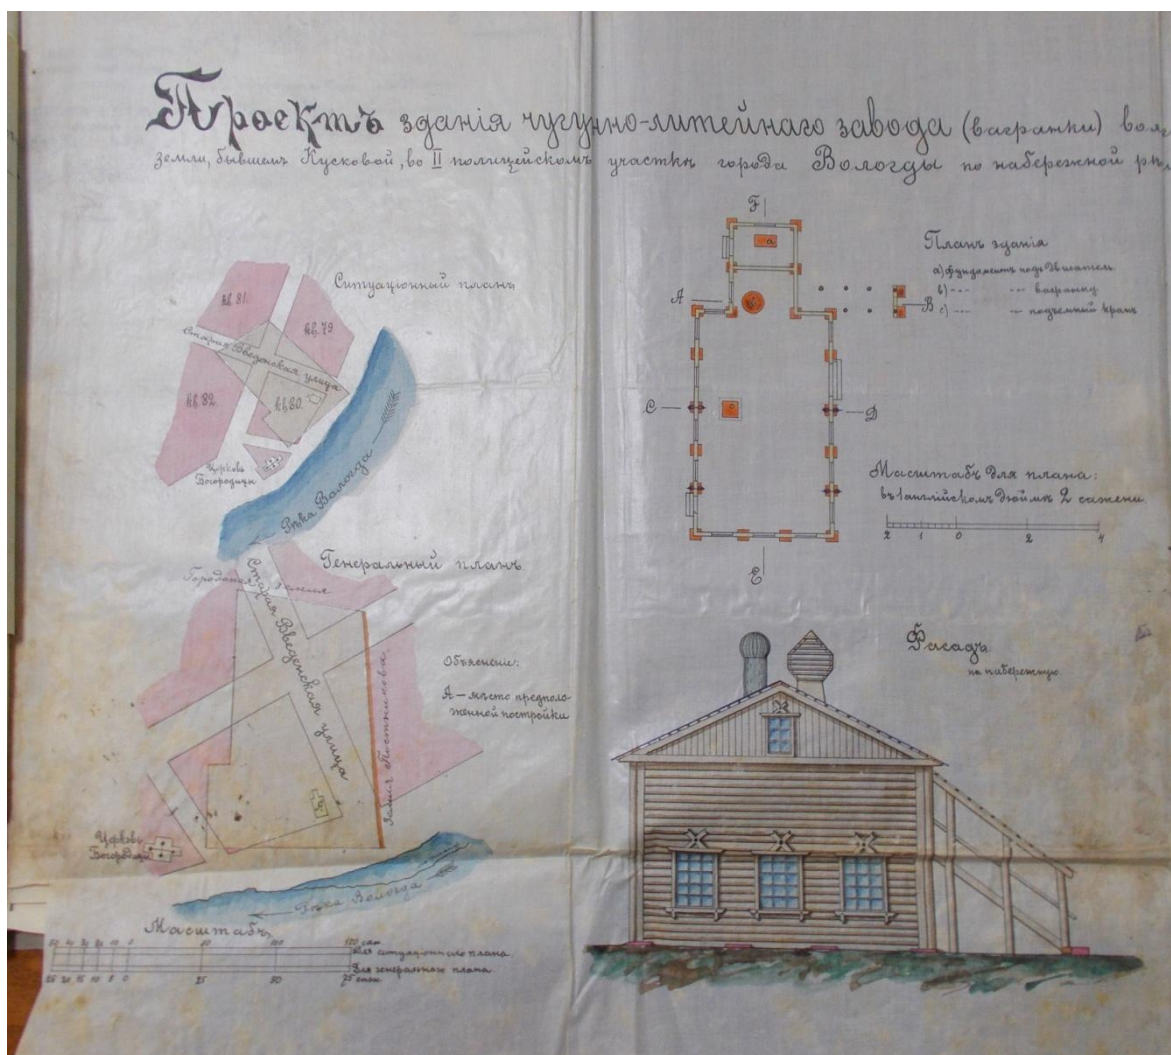 Проектъ зданія чугунно-литейнаго завода (вагранки)
земли, бывшемъ Кусковой, во II полицейскомъ участкѣ города Вологды по набережной рѣ
Ситуаціонный планъ
кв. 81.
кв. 79
Старая Введенская улица
кв. 82.
кв. 80.
Церковь
Богородицы
Рѣка Вологда
Генеральный планъ
Городская земля
Старая Введенская улица
Земля Постникова
Объясненіе:
А — мѣсто предполо-
женной постройки
Церковь
Богородицы
Рѣка Вологда
Масштабъ
50 40 30 20 10 0 50 100 150 саж
Для ситуаціоннаго плана
Для генеральнаго плана
25 20 15 10 5 0 25 50 75 саж.
F
a
A
B
C
D
E
Планъ зданія
а) фундаментъ подъ двигатель
в) - - - - - вагранку
с) - - - - - подъемный кранъ
Масштабъ для плана:
въ 1 англійскомъ дюймѣ 2 сажени
2 1 0 2 4
Фасадъ
на набережную